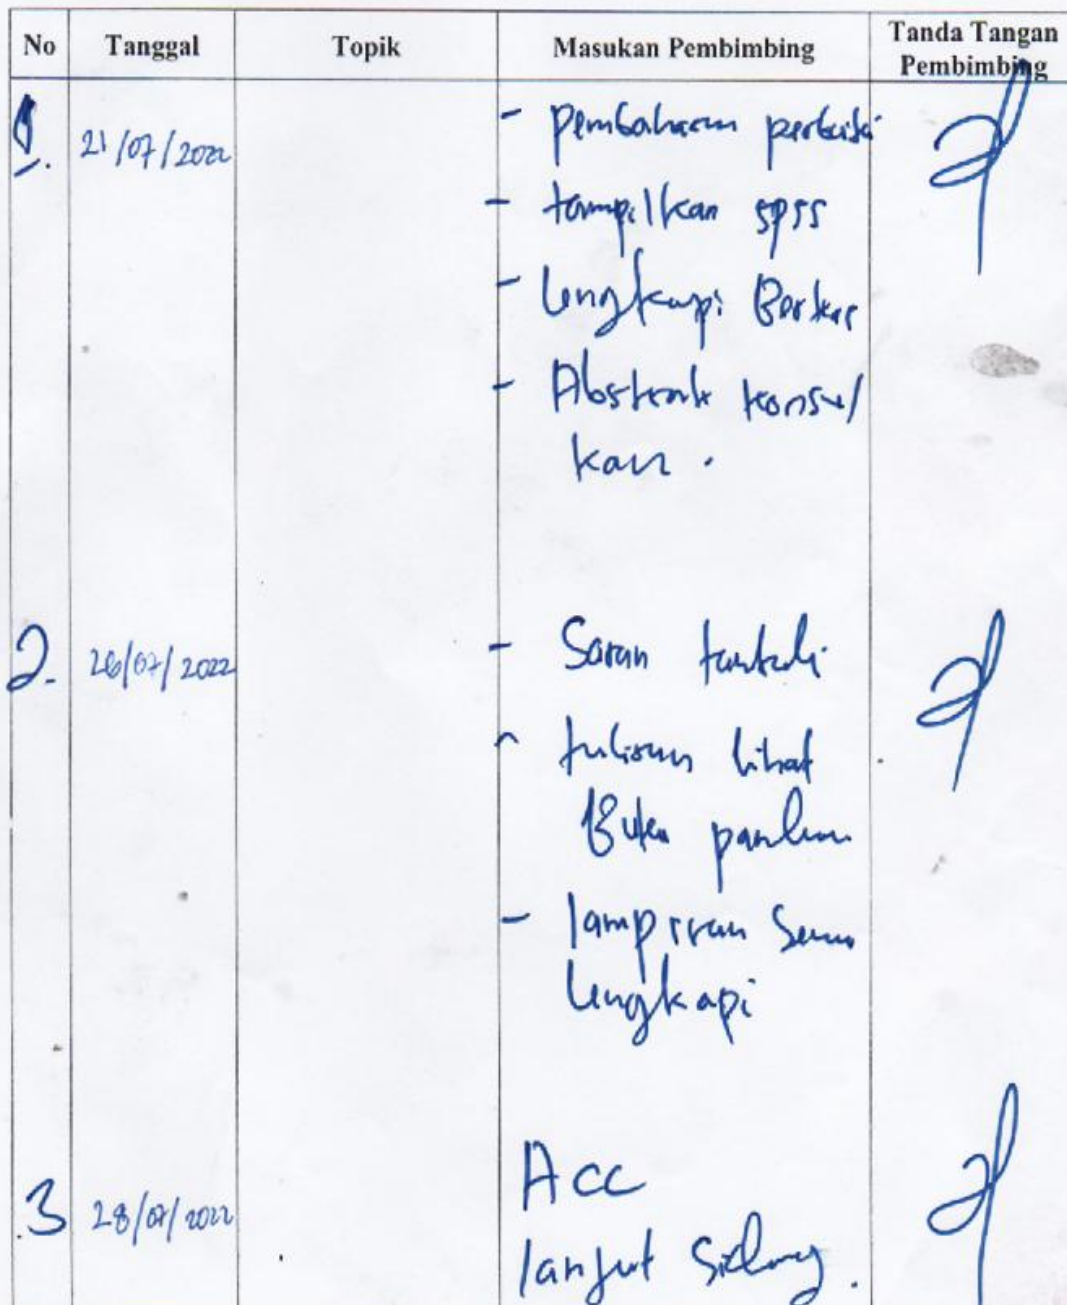 No Tanggal Topik Masukan Pembimbing Tanda Tangan Pembimbing
1. 21/07/2022 - pembahasan perbaiki
- tampilkan spss
- lengkapi Berkas
- Abstrak konsul
kan.
2. 26/07/2022 - Saran
- tulisan lihat
Buku
- lampiran
lengkapi
3 28/07/2022 Acc
lanjut Sidang.